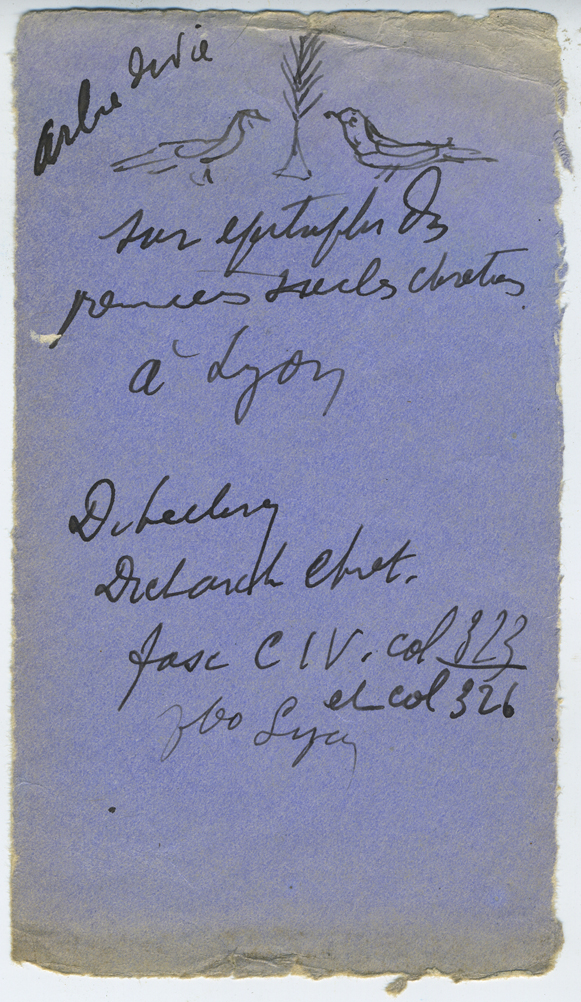 arbre de vie
sur epitaphes des
premiers siecles chretiens
à Lyon
D. Leclercq
Dict arch Chret.
fasc CIV. col 323
et col 326
Lyon